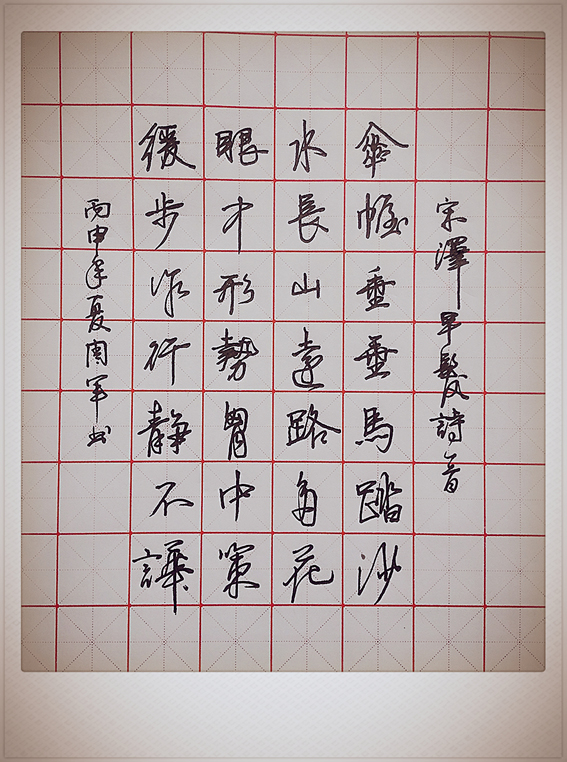 宗澤早髮詩一首
傘幄垂垂馬踏沙
水長山遠路多花
眼中形勢胷中策
緩步徐行静不譁
丙申年夏周军书